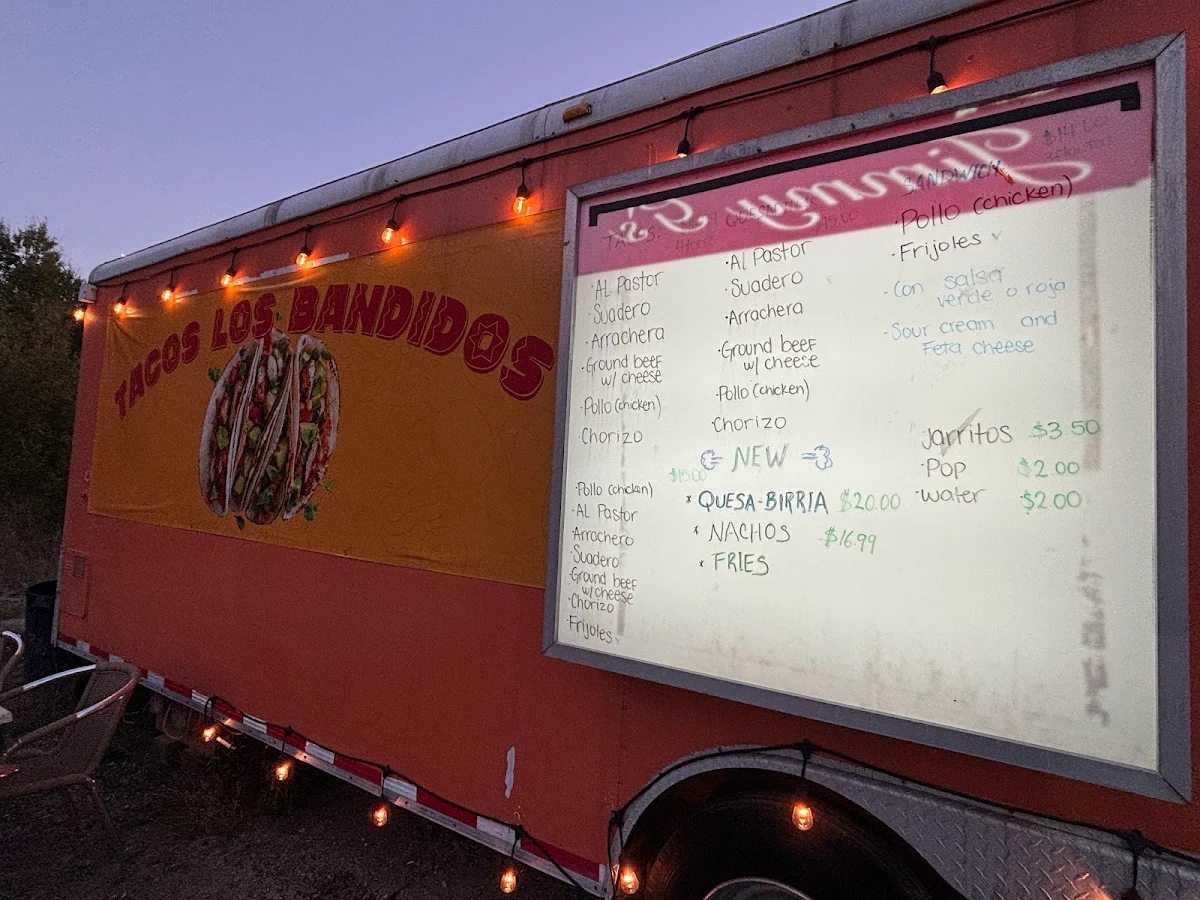 TACOS LOS BANDIDOS
TACOS:
·AL Pastor
·Suadero
·Arrachera
·Ground beef
w/ cheese
·Pollo (chicken)
·Chorizo
$15.00
·Pollo (chicken)
·AL Pastor
·Arrachero
·Suadero
·Ground beef
w/cheese
·Chorizo
·Frijoles
·AL Pastor
·Suadero
·Arrachera
·Ground beef
w/ cheese
·Pollo (chicken)
·Chorizo
NEW
* QUESA-BIRRIA $20.00
* NACHOS $16.99
* FRIES
Jimmy G's
SANDWICH
·Pollo (chicken)
·Frijoles
·Con salsa
verde o roja
·Sour cream and
Feta cheese
Jarritos $3.50
·Pop $2.00
·water $2.00